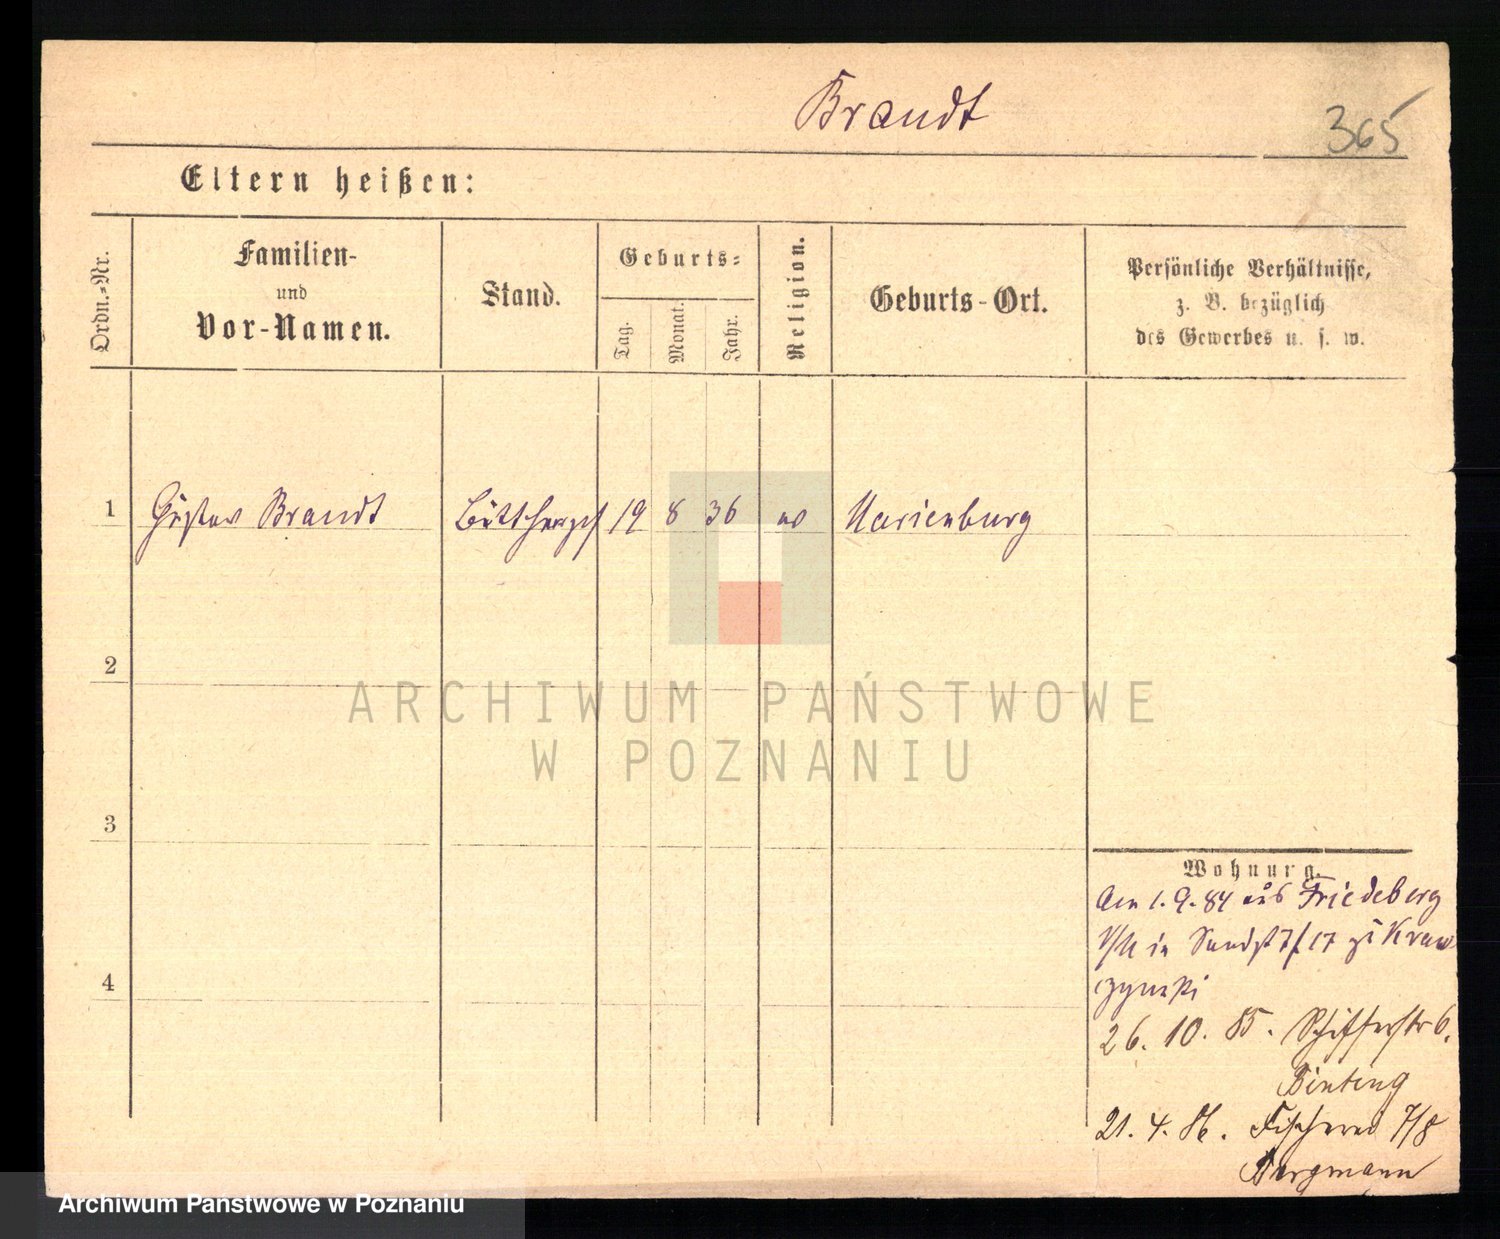 Brandt
365
Eltern heißen:
Ordn.-Nr.
Familien-
und
Vor-Namen.
Stand.
Geburts-
Tag.
Monat.
Jahr.
Religion.
Geburts-Ort.
Persönliche Verhältnisse,
z. B. bezüglich
des Gewerbes u. s. w.
1 Gustav Brandt Böttcherges 19 8 36 ev Marienburg
2
3
4
Wohnung.
Am 1. 9. 84 aus Friedeberg
N/M in Sandst 7/17 zu Kraw
czynski
26. 10. 85. Schifferstr 6.
Binting
21. 4. 86. Fischerei 7/8
Bergmann
ARCHIWUM PAŃSTWOWE
W POZNANIU
Archiwum Państwowe w Poznaniu